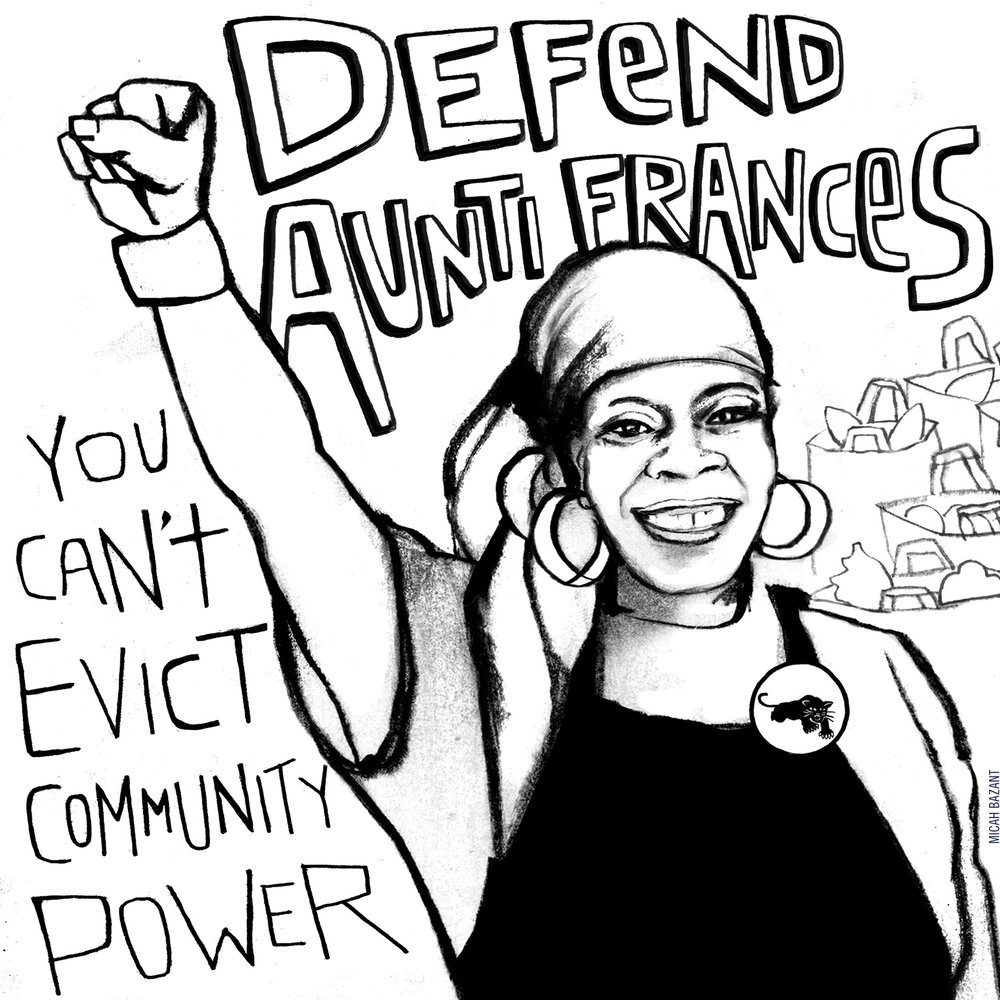 DEFeND
AUNTI FRANCeS
YOU
CAN'T
EVICT
COMMUNITY
POWER
MICAH BAZANT